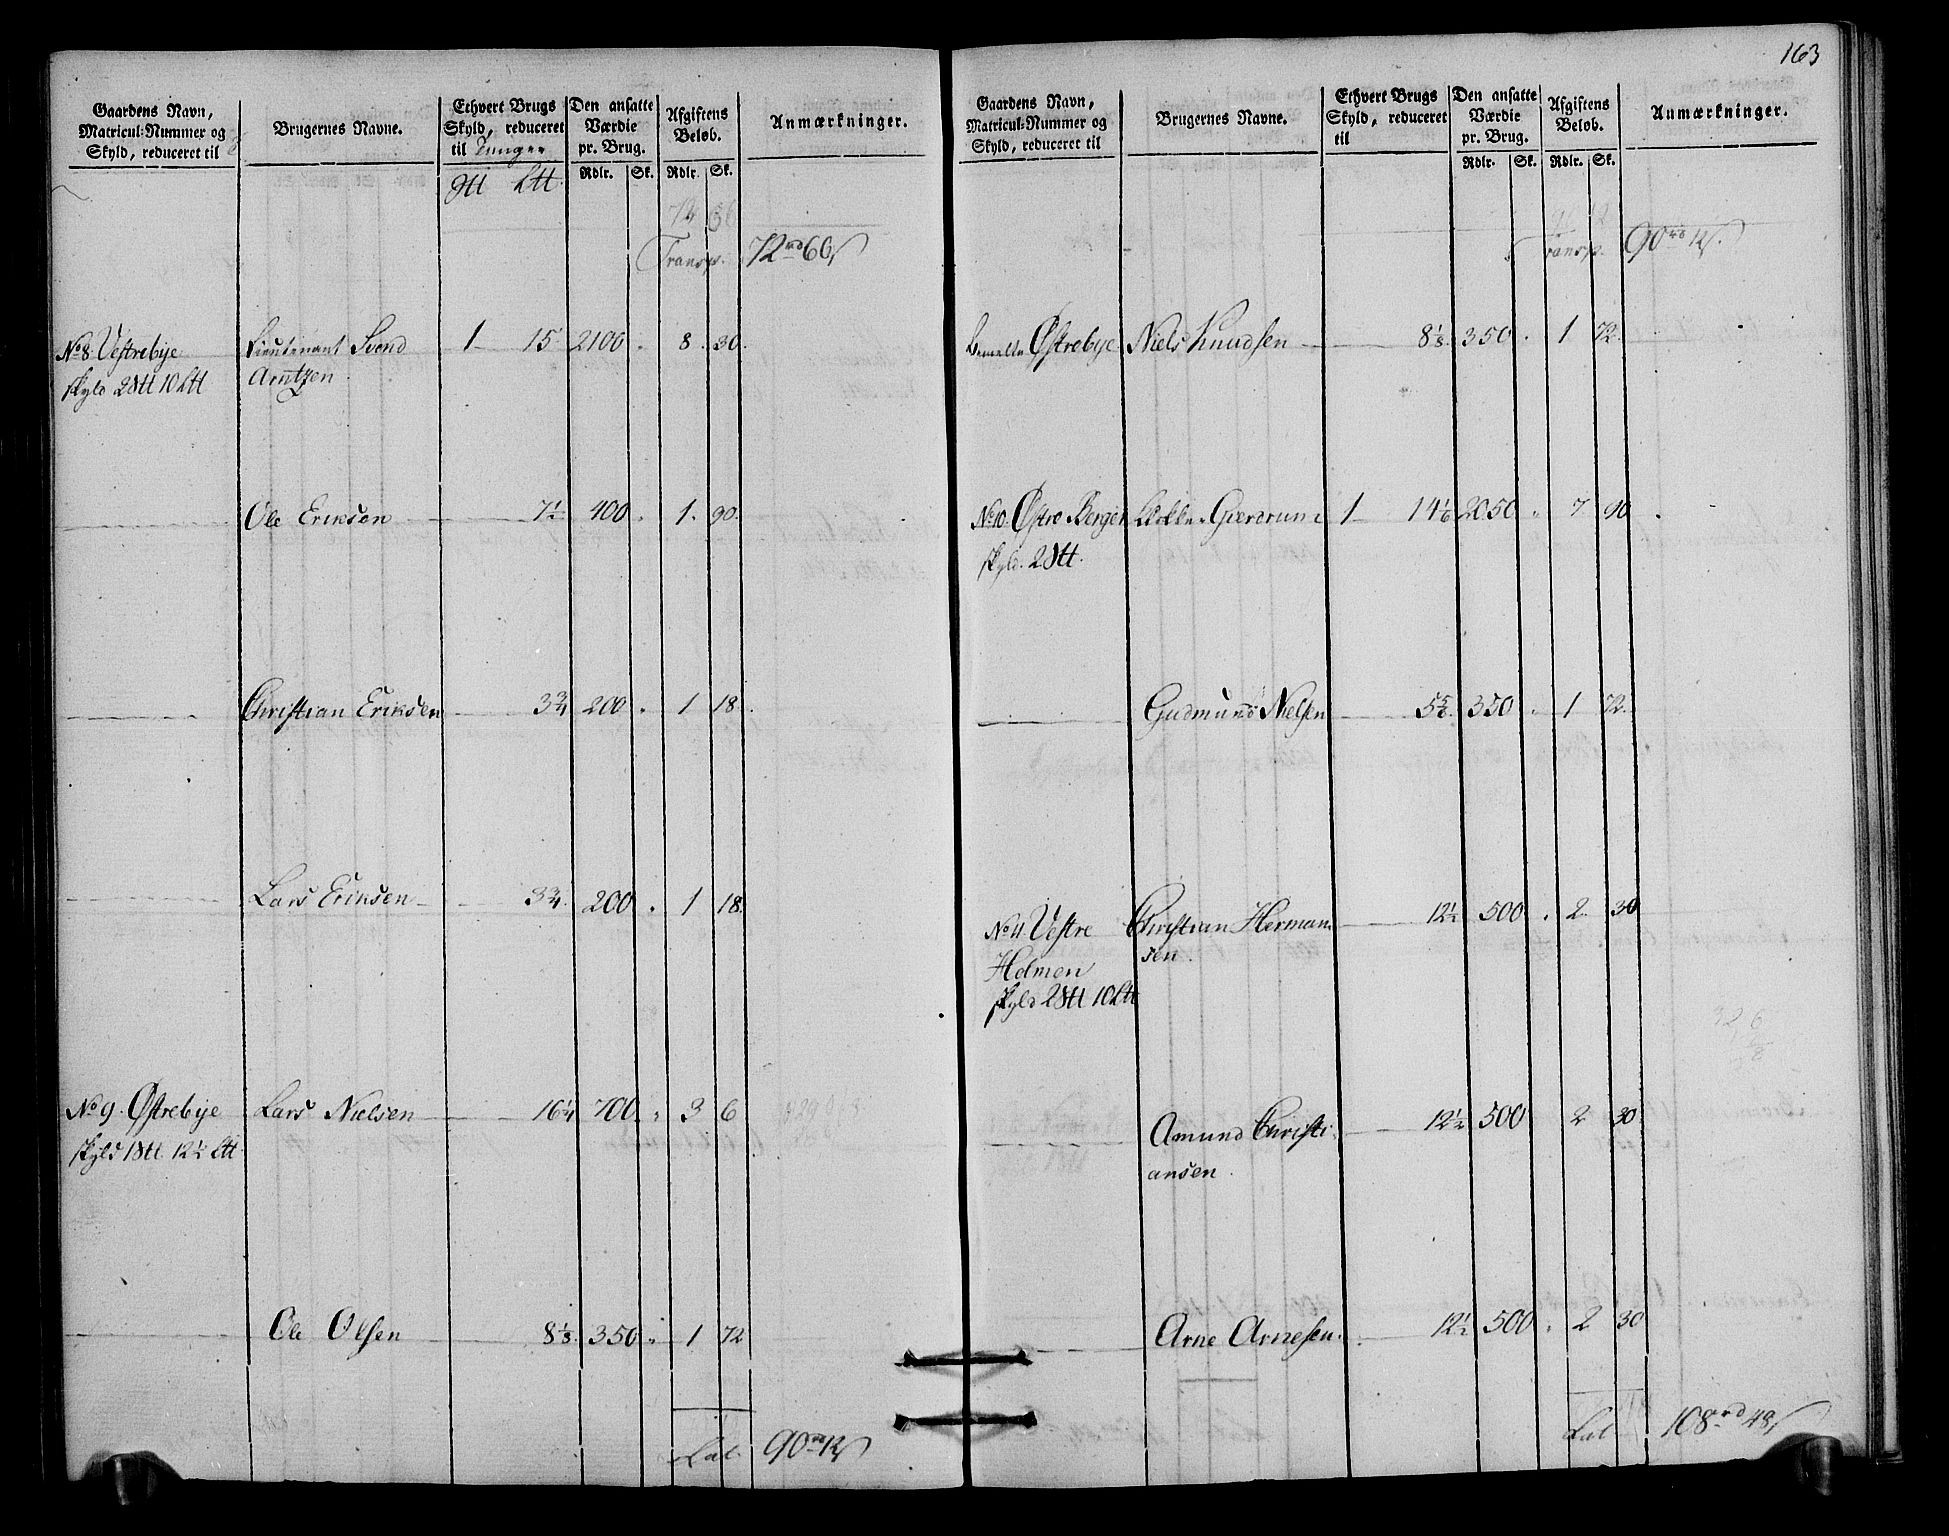 163
Gaardens Navn, Matricul-Nummer og Skyld, reduceret til
Brugernes Navne.
Ethvert Brugs Skyld, reduceret til Tunge
Den ansatte Værdie pr. Brug.
Afgiftens Beløb.
Anmærkninger.
Rdlr. Sk. Rdlr. Sk.
Transp. 72 rd 66 s
No 8 Vestrebye Lieutenant Svend 1 15 2100 . 8 . 30.
skyld 2 10 Arntzen
Ole Eriksen 7½ 400 . 1. 90.
Christian Eriksen 3¾ 200 . 1 18.
Lars Eriksen 3¾ 200 . 1 18.
No 9. Østrebye Lars Nielsen 16¼ 700 . 3 6
skyld 1 12½
Ole Olsen 8⅛ 350 . 1 72
Lat. 90 rd 12 s
Gaardens Navn, Matricul-Nummer og Skyld, reduceret til
Brugernes Navne.
Ethvert Brugs Skyld, reduceret til
Den ansatte Værdie pr. Brug.
Afgiftens Beløb.
Anmærkninger.
Rdlr. Sk. Rdlr. Sk.
Transp. 90 rd 12 s.
Bemelte Østrebye Niels Knudsen 8⅛ 350 . 1 72.
No 10. Østre Berger Gierdrum 1 14⅙ 2050 . 7 90
skyld. 2
Gudmund Nielsen 5⅚ 350 . 1 72.
No 11 Vestre Christian Herman- 12½ 500 . 2 30
Holmen sen.
skyld 2 10
Amund Christi- 12½ 500 2 30
ansen.
Arne Arnesen. 12½ 500 . 2 30
Lat. 108 rd 48 s